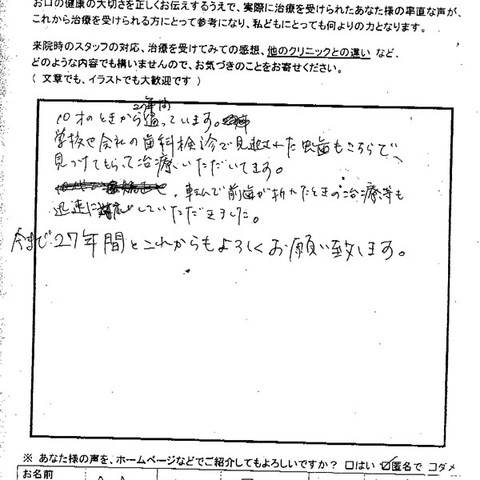 お口の健康の大切さを正しくお伝えするうえで、実際に治療を受けられたあなた様の率直な声が、
これから治療を受けられる方にとって参考になり、私どもにとっても何よりの力となります。
来院時のスタッフの対応、治療を受けてみての感想、他のクリニックとの違い など、
どのような内容でも構いませんので、お気づきのことをお寄せください。
（ 文章でも、イラストでも大歓迎です ）
10才のときから通っています。
学校や会社の歯科検診で見逃された虫歯もこちらで、
見つけてもらって治療いただいてます。
転んで前歯が折れたときの治療等も
迅速に していただきました。
今まで27年間とこれからもよろしくお願い致します。
※ あなた様の声を、ホームページなどでご紹介してもよろしいですか？ □はい ☑匿名で □ダメ
お名前